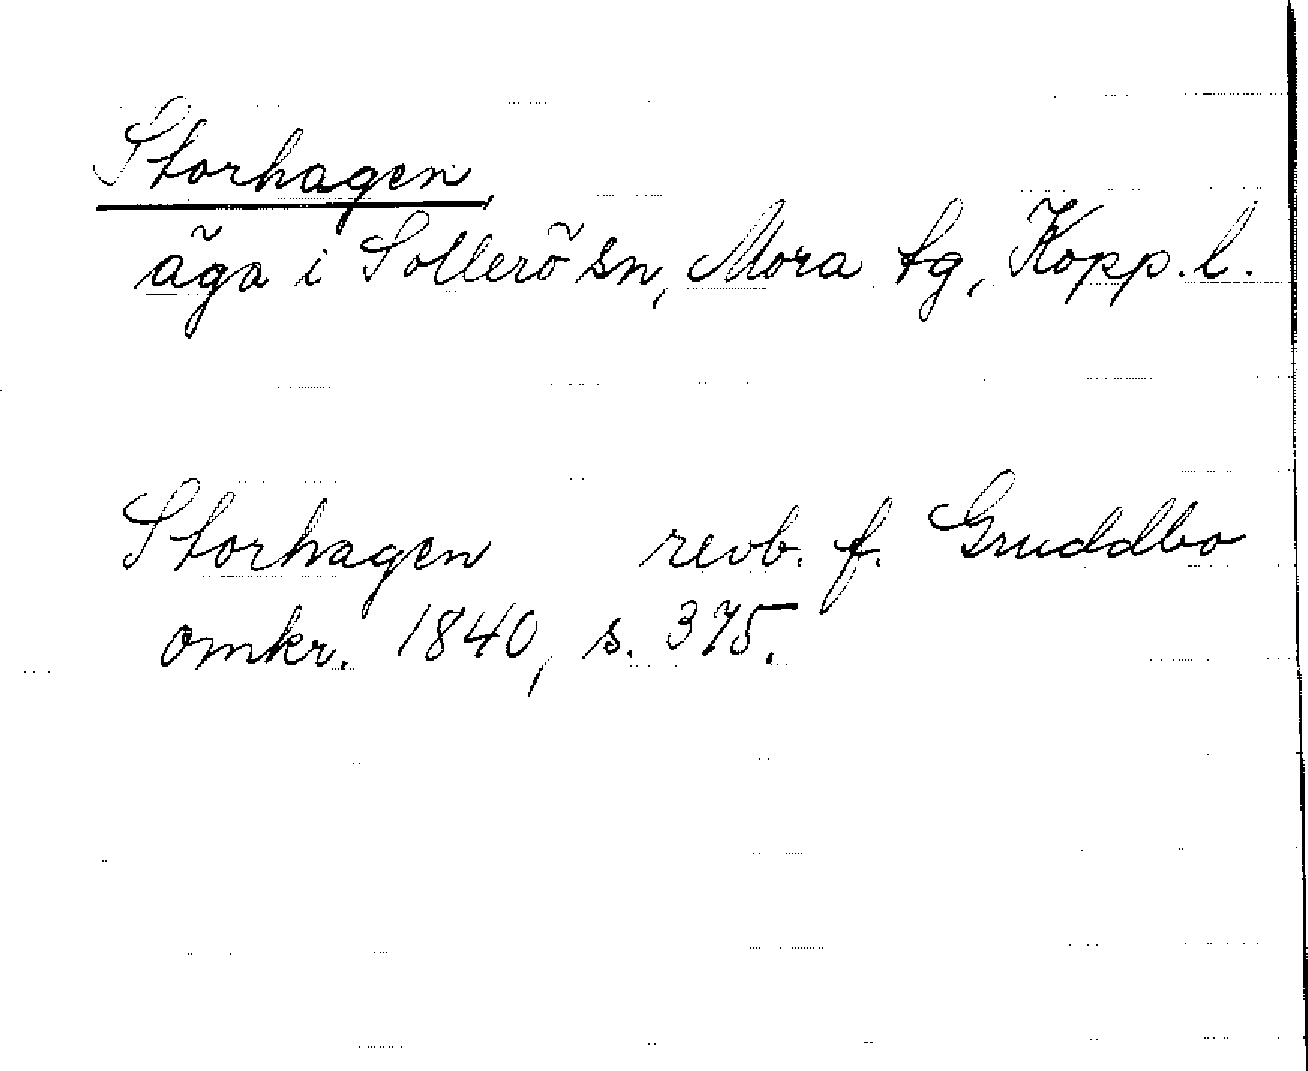 Storhagen,
äga i Sollerö sn, Mora tg, Kopp. l.
Storhagen revb. f. Gruddbo
omkr. 1840, s. 375.